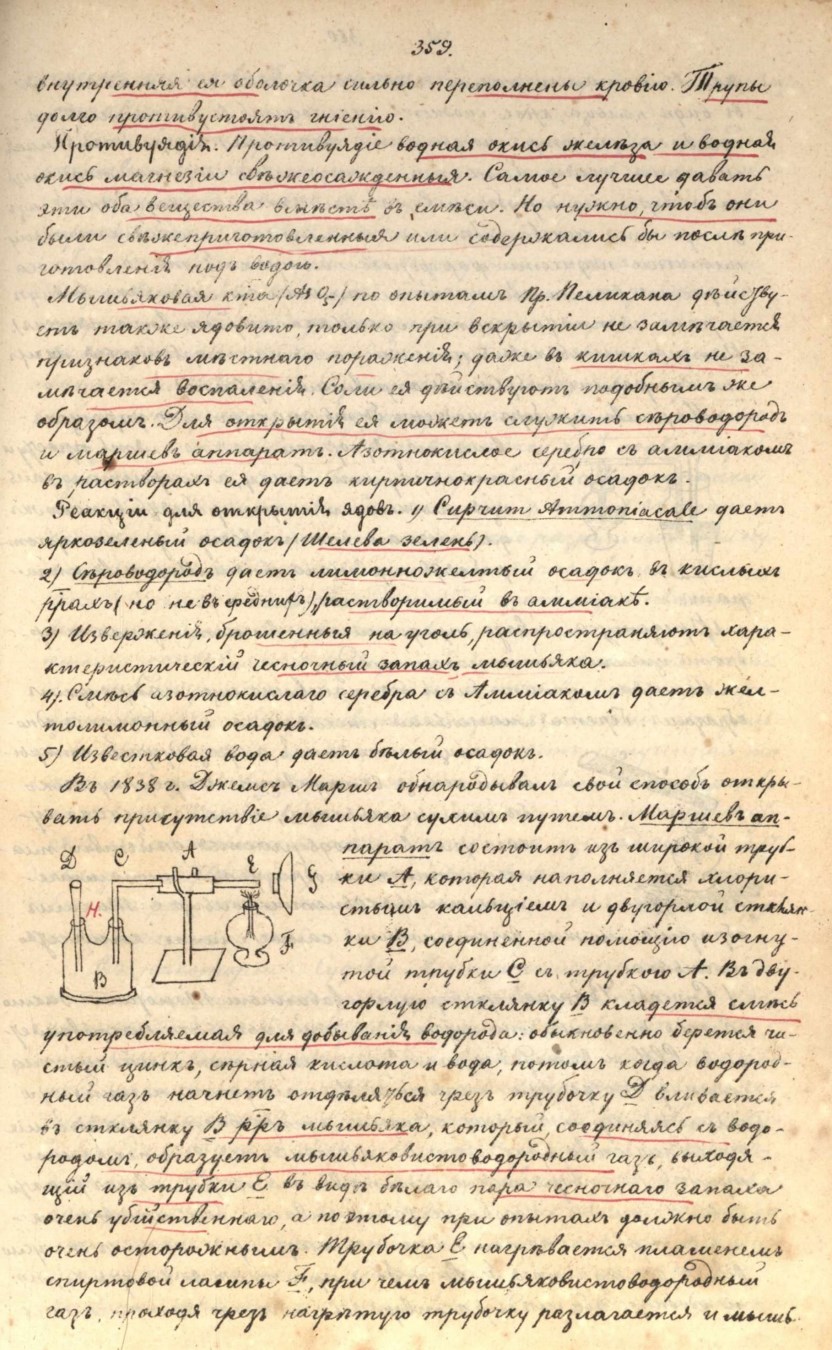 359.
внутренняя ея оболочка сильно переполнены кровію. Трупы
долго противустоятъ гніенію.
Противуядія. Противуядіе водная окись желѣза и водная
окись магнезіи свѣжеосажденныя. Самое лучшее давать
эти оба вещества вмѣстѣ въ смѣси. Но нужно, чтобъ они
были свѣжеприготовленныя или содержались бы послѣ при-
готовленія подъ водою.
Мышьяковая к̅та (As O₅) по опытамъ Пр. Пеликана дѣйству-
етъ также ядовито, только при вскрытіи не замѣчается
признаковъ мѣстнаго пораженія; даже въ кишкахъ не за-
мѣчается воспаленія. Соли ея дѣйствуютъ подобнымъ же
образомъ. Для открытія ея можетъ служить сѣроводородъ
и маршевъ аппаратъ. Азотнокислое серебро съ амміакомъ
въ растворахъ ея даетъ кирпичнокрасный осадокъ.
Реакціи для открытія ядовъ. 1) Cuprum Ammoniacale даетъ
яркозеленый осадокъ (Шелева зелень).
2) Сѣроводородъ даетъ лимонножелтый осадокъ въ кислыхъ
р̅рахъ (но не въ средних), растворимый въ амміакѣ.
3) Изверженія, брошенныя на уголь, распространяютъ хара-
ктеристическій чесночный запахъ мышьяка.
4) Смѣсь азотнокислаго серебра съ Амміакомъ даетъ жел-
толимонный осадокъ.
5) Известковая вода даетъ бѣлый осадокъ.
Въ 1838 г. Джемсъ Маршъ обнародывалъ свой способъ откры-
вать присутствіе мышьяка сухимъ путемъ. Маршевъ ап-
паратъ состоитъ изъ широкой труб-
ки A, которая наполняется хлори-
стымъ кальціемъ и двугорлой стклян-
ки B, соединенной помощію изогну-
той трубки C съ трубкою A. Въ дву-
горлую стклянку B кладется смѣсь
D C A E G
H. F
B
употребляемая для добыванія водорода: обыкновенно берется чи-
стый цинкъ, сѣрная кислота и вода, потомъ когда водород-
ный газъ начнетъ отдѣляться чрезъ трубочку D вливается
въ стклянку B р̅ръ мышьяка, который, соединяясь съ водо-
родомъ, образуетъ мышьяковистоводородный газъ, выходя-
щій изъ трубки E въ видѣ бѣлаго пара чесночнаго запаха
очень убійственнаго, а поэтому при опытахъ должно быть
очень осторожнымъ. Трубочка E нагрѣвается пламенемъ
спиртовой лампы F, при чемъ мышьяковистоводородный
газъ, проходя чрезъ нагрѣтую трубочку разлагается и мышь